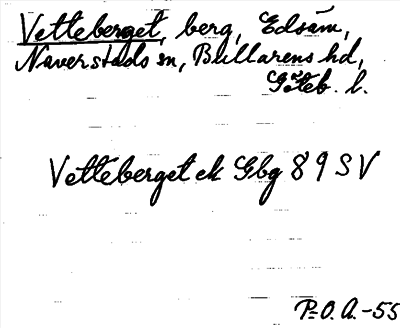 Vetteberget, berg, Edsäm,
Naverstads sn, Bullarens hd,
Göteb. l.
Vetteberget ek Gbg 89 SV
P-O.A.-55